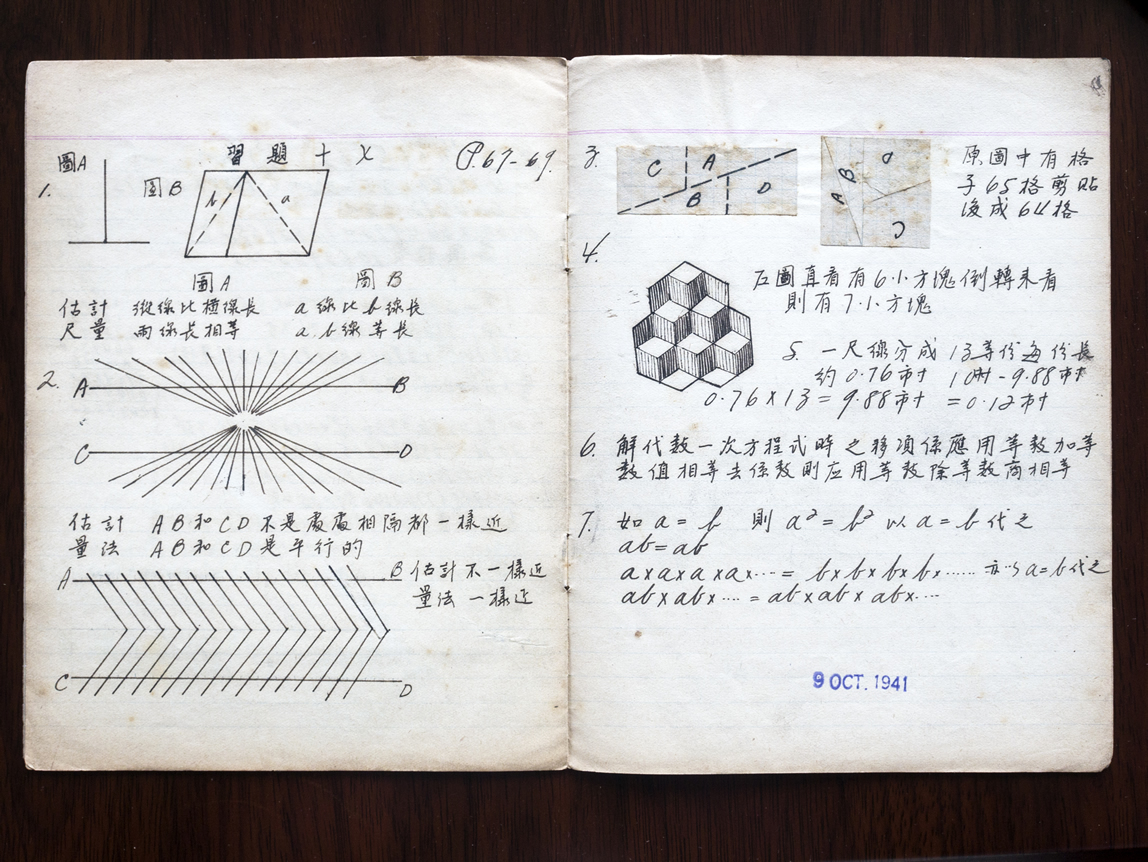 習題十X P.67-69.
圖A
1.
圖B
b a
圖A 圖B
估計 縱線比橫線長 a線比b線長
尺量 兩線長相等 a.b線等長
2.
A B
C D
估計 AB和CD不是處處相隔都一樣近
量法 AB和CD是平行的
A B 估計不一樣近
量法一樣近
C D
3.
C A B D
A B D C
原圖中有格
子65格剪貼
後成64格
4.
左圖直看有6小方塊倒轉來看
則有7小方塊
5. 一尺線分成13等份每份長
約0.76市寸 10寸-9.88市寸
0.76×13=9.88市寸 =0.12市寸
6. 解代数一次方程式時之移項係應用等数加等
数值相等去係数則应用等数除等数商相等
7. 如a=b 則a²=b² 以a=b代之
ab=ab
a×a×a×a×····=b×b×b×b×······亦以a=b代之
ab×ab×····=ab×ab×ab×····
9 OCT. 1941